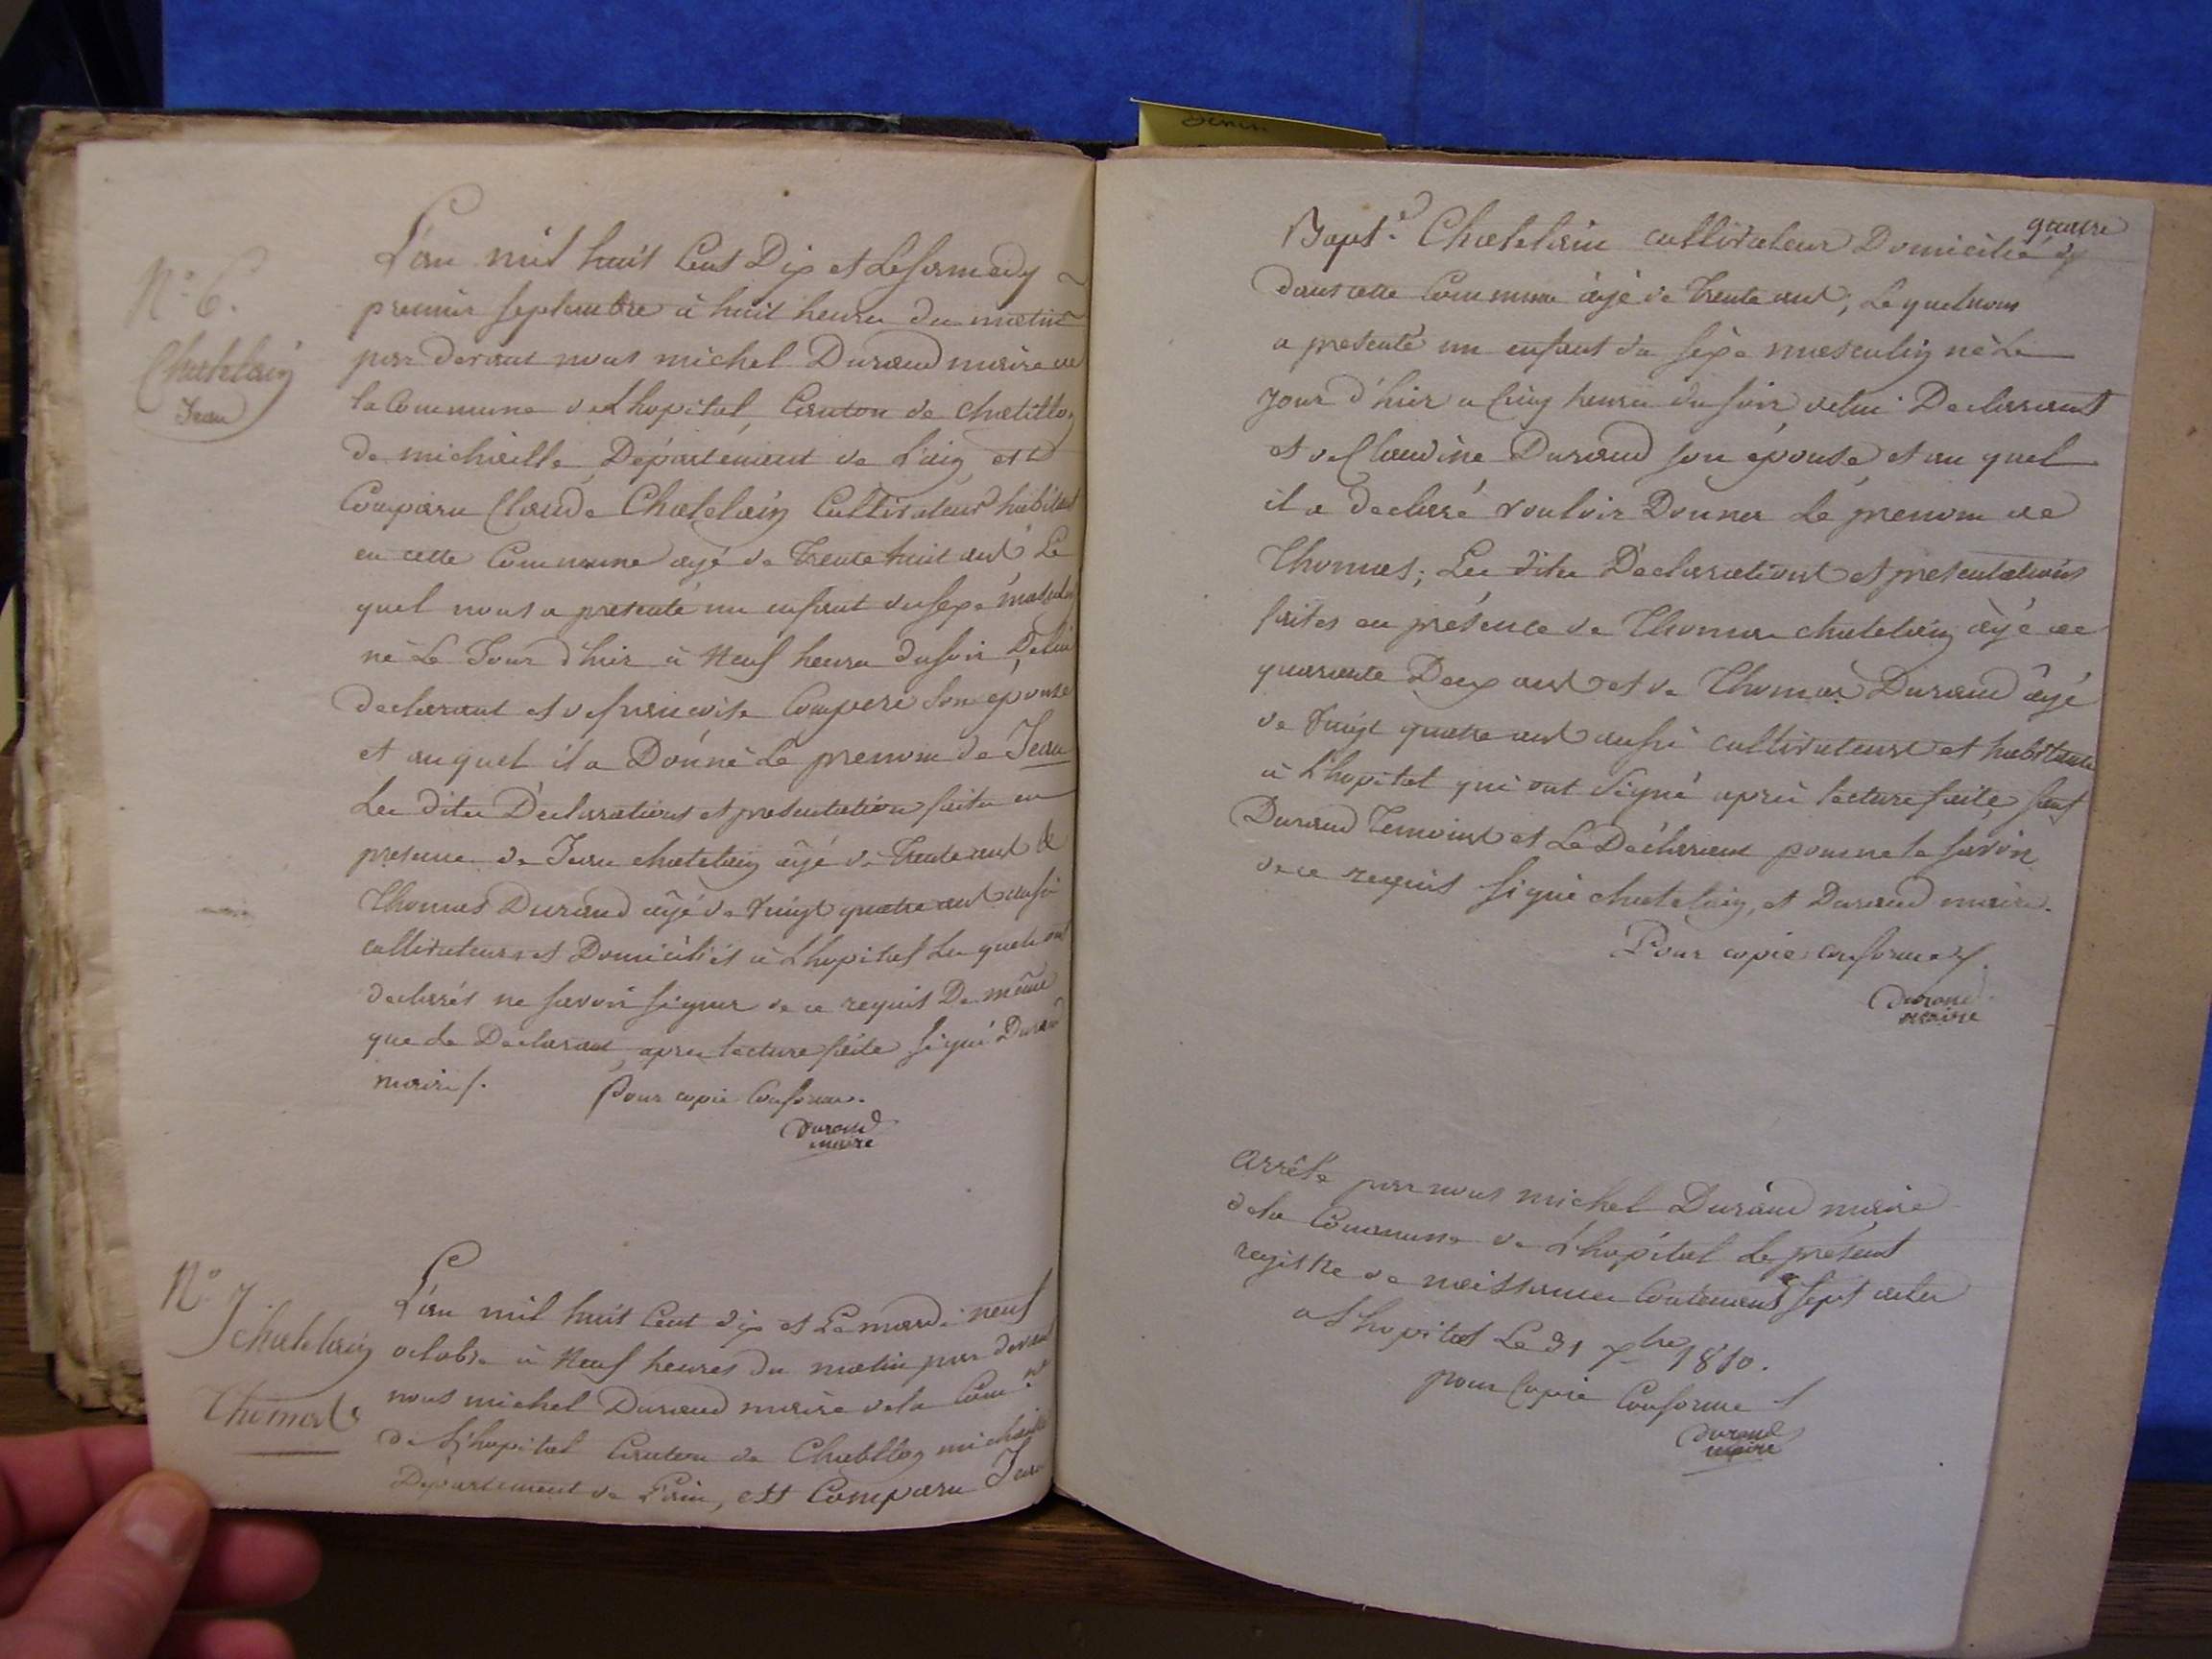 N.o 6.
Chatelain
Jean
L'an mil huit Cent Dix et Le samedy
premier septembre à huit heures du matin
par devant nous michel Durand maire de
la Commune de Lhopital, Canton de chatillon
de michaille, Département de L'ain, est
Comparu Claude Chatelain Cultivateur habitant
en cette Commune agé de trente huit ans Le
quel nous a presenté un enfant du sexe masculin
né Le Jour d'hier à Neuf heures du soir, De lui
declarant et de francoise Compere son épouse
et au quel il a Donné Le prenom de Jean
Les dites Déclarations et presentation faites en
presence de Jean chatelain âgé de trente ans &
Thomas Durand âgé de vingt quatre ans aussi
cultivateurs et Domiciliés à Lhopital Les quels ont
declarés ne savoir signer de ce requis De même
que Le Declarant, apres lecture faite signé Durand
maire /.
Pour copie Conforme.
Durand
maire
N.o 7
chatelain
Thomas
L'an mil huit Cent dix et Le mardi neuf
octobre à Neuf heures du matin par devant
nous michel Durand maire de la Com.ne
de L'hopital Canton de Chatillon michaille
Departement de L'ain, est Comparu Jean
quatre
Bapt.e Chatelain cultivateur Domicilié
dans cette Commune âgé de trente ans, Le quel nous
a presenté un enfant du sexe masculin né Le
jour d'hier a Cinq heures du soir de lui Declarant
et de Claudine Durand son épouse et au quel
il a declaré vouloir Donner Le prenom de
Thomas; Les dites Déclarations et presentations
faites en présence de Thomas chatelain âgé de
quarante Deux ans et de Thomas Durand âgé
de vingt quatre ans aussi cultivateurs et habitants
à L'hopital qui ont signé après lecture faite, sauf
Durand Temoins et Le Déclarant pour ne le savoir
de ce requis signé chatelain, et Durand maire.
Pour copie conforme /.
Durand
maire
Arrêté par nous michel Durand maire
de la Commune de L'hopital Le présent
registre de naissances Contenant sept actes
a Lhopital Le 31 Xbre 1810.
pour Copie Conforme /
Durand
maire